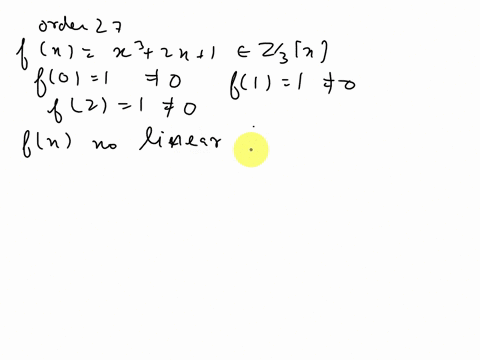 order 27
f(x) = x³ + 2x + 1 ∈ Z/3[x]
f(0) = 1 ≠ 0 f(1) = 1 ≠ 0
f(2) = 1 ≠ 0
f(x) no linear